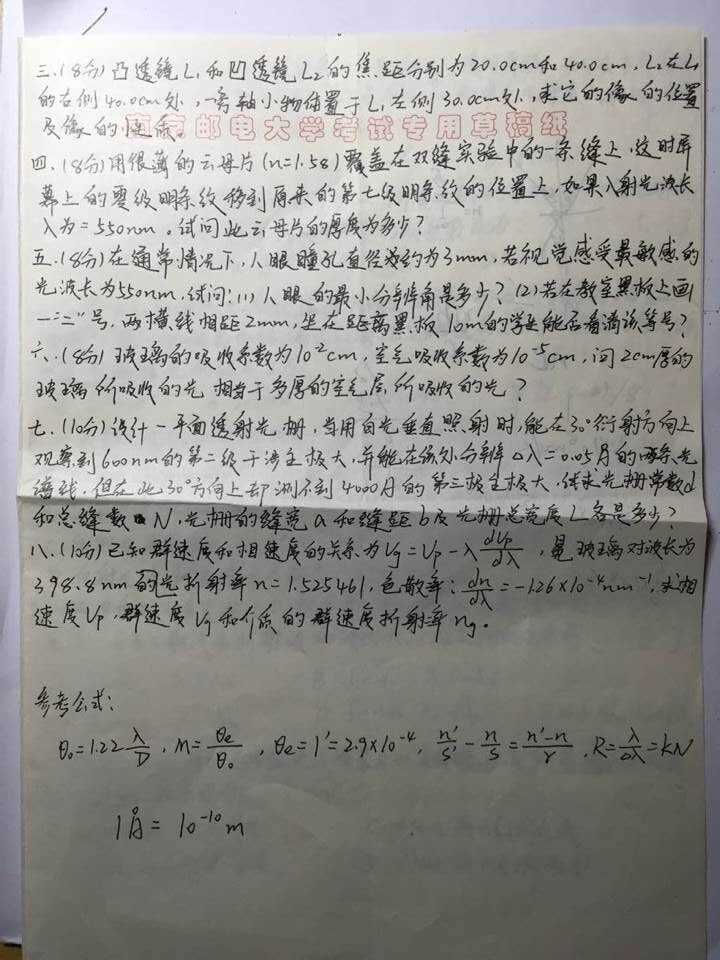 三.(8分)凸透镜L₁和凹透镜L₂的焦距分别为20.0cm和40.0cm,L₂在L₁
的右侧40.0cm处,一旁轴小物体置于L₁左侧30.0cm处,求它的像的位置
及像的性质
南京邮电大学考试专用草稿纸
四.(8分)用很薄的云母片(n=1.58)覆盖在双缝实验中的一条缝上,这时屏
幕上的零级明条纹移到原来的第七级明条纹的位置上,如果入射光波长
λ为=550nm。试问此云母片的厚度为多少?
五.(8分)在通常情况下,人眼瞳孔直径约为3mm,若视觉感受最敏感的
光波长为550nm,试问:(1)人眼的最小分辨角是多少?(2)若在教室黑板上画
一"="号,两横线相距2mm,坐在距离黑板10m的学生能否看清该等号?
六.(8分)玻璃的吸收系数为10⁻²cm,空气吸收系数为10⁻⁵cm,问2cm厚的
玻璃所吸收的光 相当于多厚的空气层所吸收的光?
七.(10分)设计一平面透射光栅,当用白光垂直照射时,能在30°衍射方向上
观察到600nm的第二级干涉主极大,并能在该处分辨Δλ=0.05Å的两条光
谱线,但在此30°方向上却测不到4000Å的第三极主极大,试求光栅常数d
和总缝数N,光栅的缝宽a和缝距b及光栅总宽度L各是多少?
八.(10分)已知群速度和相速度的关系为Vg=Vp-λdVp/dλ,冕玻璃对波长为
398.8nm的光折射率n=1.525461,色散率:dn/dλ=-1.26×10⁻⁴nm⁻¹,求相
速度Vp,群速度Vg和介质的群速度折射率ng。
参考公式:
θ₀=1.22λ/D,M=θe/θ₀,θe=1′=2.9×10⁻⁴,n′/s′-n/s=(n′-n)/r,R=λ/Δλ=kN
1Å=10⁻¹⁰m